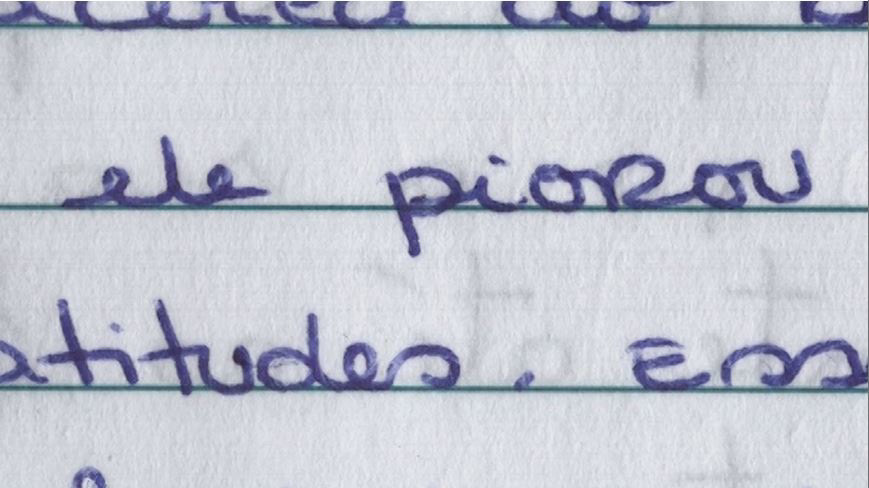 ele piorou
atitudes. Ess